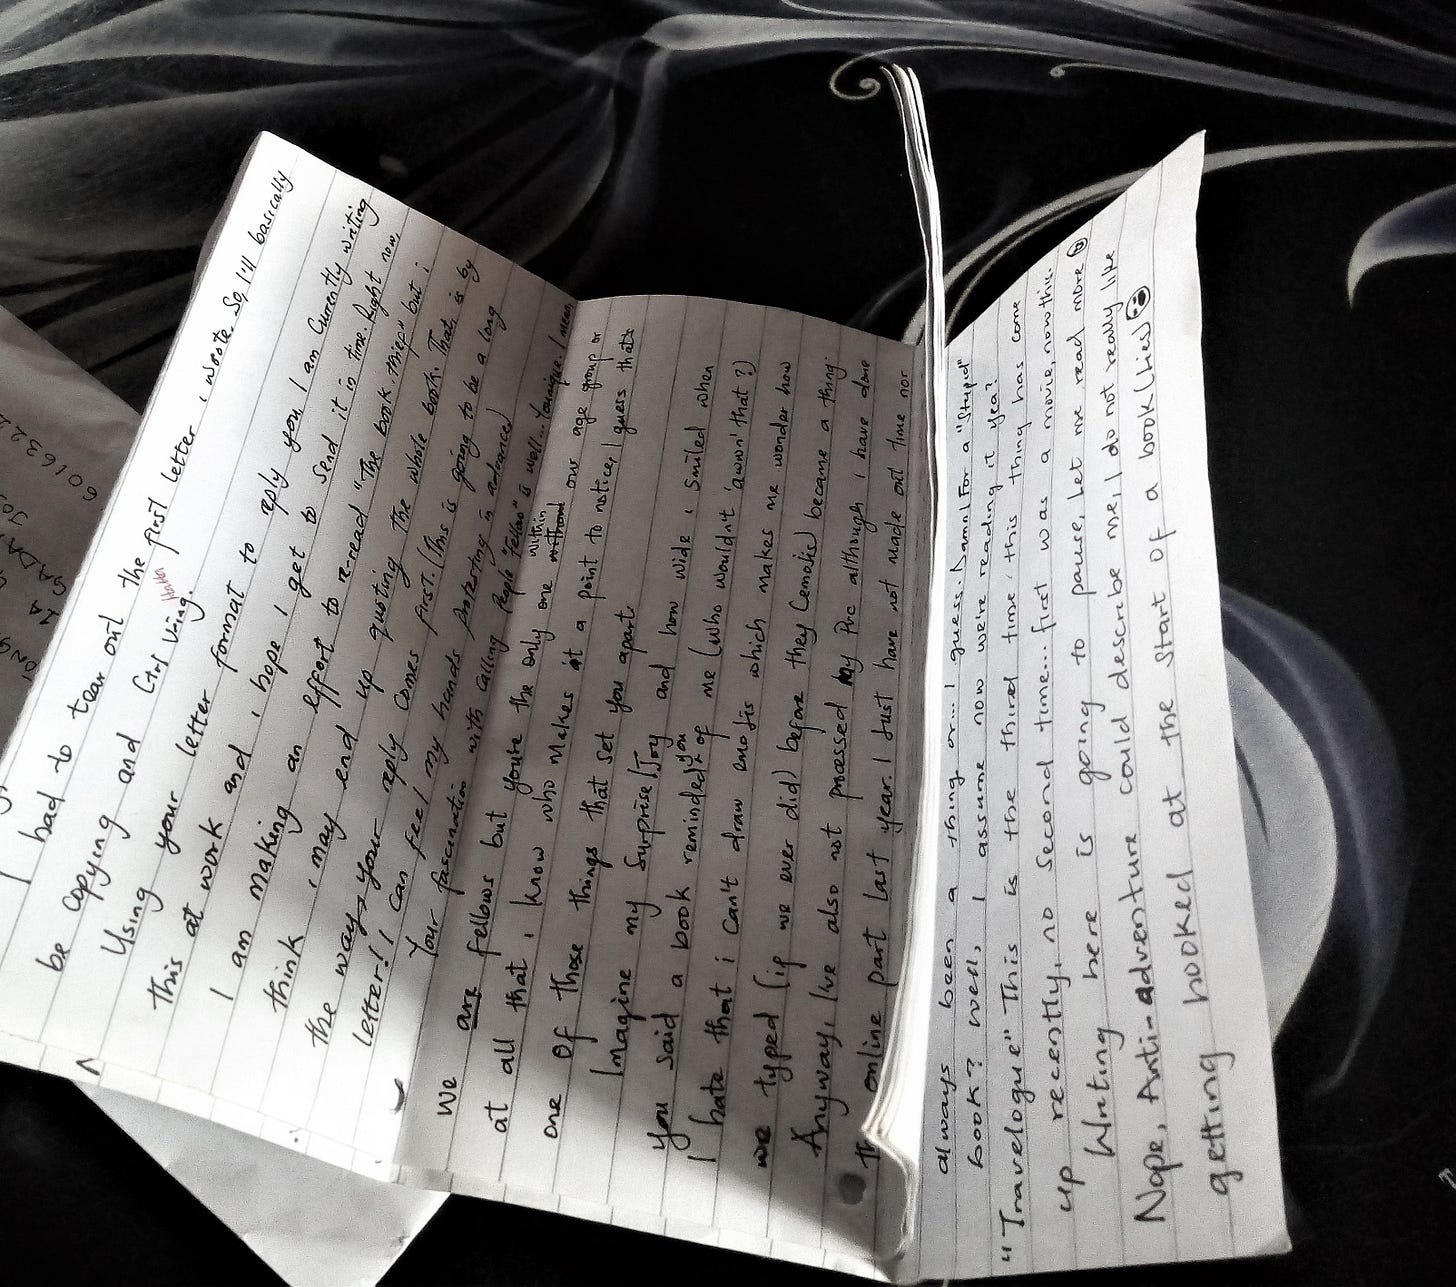 I had to tear out the first letter i wrote. So, I'll basically
be copying and Ctrl Ving.
HaHa
Using your letter format to reply you, I am currently writing
this at work and i hope I get to send it in time. Right now,
I am making an effort to re-read "The book thief" but i
think i may end up quoting the whole book. That is by
the way→your reply comes first. (This is going to be a long
letter!! I can feel my hands protesting in advance)
Your fascination with calling people "fellow" is well... (unique. I mean,
We are fellows but you're the only one within our age group or
at all that i know who makes it a point to notice, I guess that's
one of those things that set you apart.
Imagine my surprise/Joy and how wide i smiled when
you said a book reminded you of me (who wouldn't 'awwn' that?)
I hate that i can't draw emojis which makes me wonder how
we typed (if we ever did) before they (emojis) became a thing.
Anyway, I've also not processed my Pvc although i have done
the online part last year. I Just have not made out time nor
always been a thing or... I guess. Damn! For a "stupid"
book? Well, I assume now we're reading it yea?
"Travelogue" This is the third time this thing has come
up recently, no second time... first was a movie, now this.
Writing here is going to pause, Let me read more
Nope, Anti-adventure could describe me, I do not really like
getting hooked at the start of a book (Lies)
601632
GADA